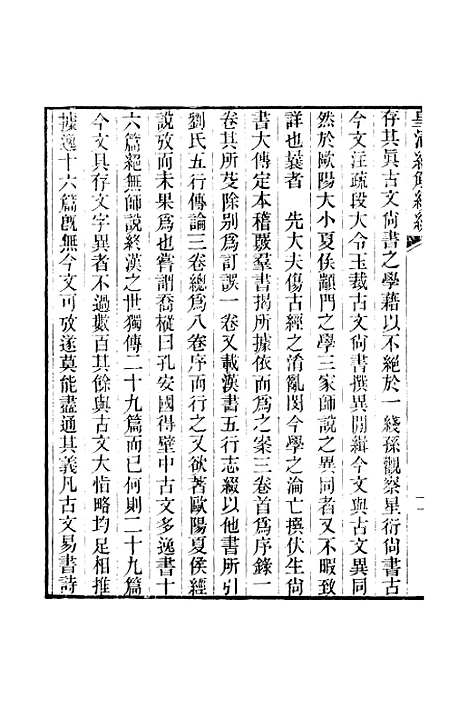 皇清經解續編
存其眞古文尙書之學藉以不絕於一綫孫觀察星衍尙書古
今文注疏段大令玉裁古文尙書撰異開緝今文與古文異同
然於歐陽大小夏侯顓門之學三家師說之異同又不暇致
詳也曩者　先大夫傷古經之淆亂閔今學之淪亡撰伏生尙
書大傳定本稽覈羣書揭所據依而爲之案三卷首爲序錄一
卷其所芟除别爲訂誤一卷又載漢書五行志綴以他書所引
劉氏五行傳論三卷總爲八卷序而行之又欲著歐陽夏侯經
說攷而未果爲也嘗謂喬樅曰孔安國得壁中古文多逸書十
六篇絕無師說終漢之世獨傳二十九篇而已何則二十九篇
今文具存文字異者不過數百其餘與古文大恉略均足相推
據逸十六篇旣無今文可攷遂莫能盡通其義凡古文易書詩